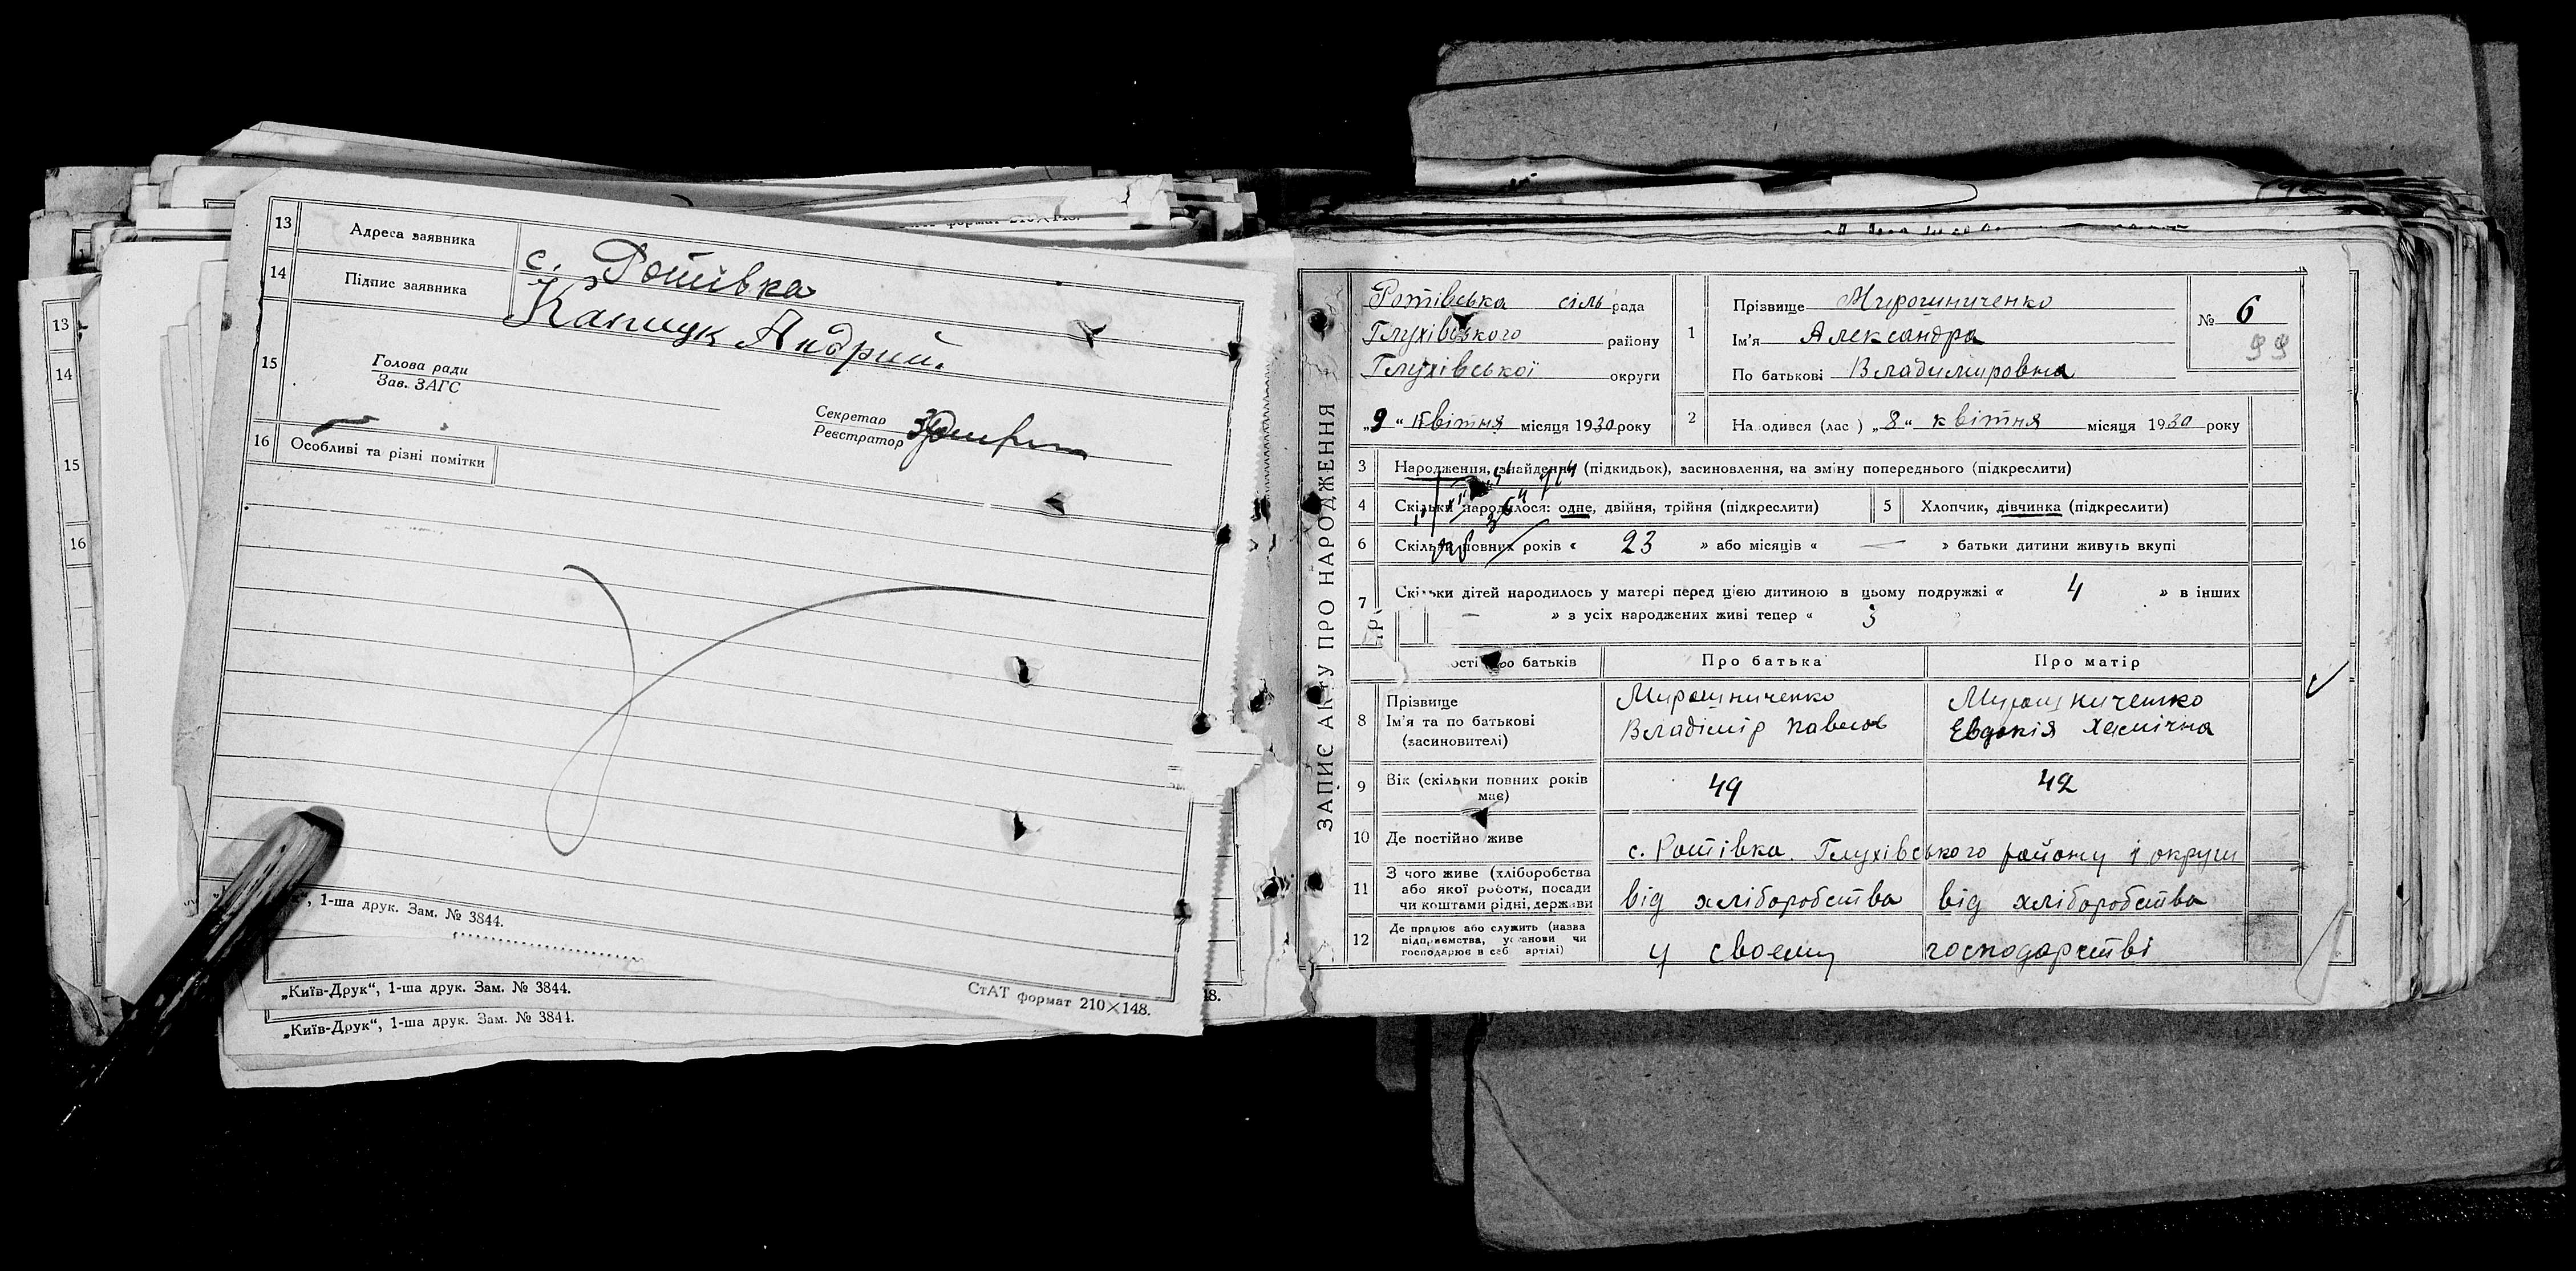 13 Адреса заявника с. Ротівка
14 Підпис заявника Капицук Андрий.
15 Голова ради
Зав. ЗАГС
Секретар
Реєстратор
16 Особливі та різні помітки
13
14
15
16
1-ша друк. Зам. № 3844.
СтАТ формат 210×148.
„Київ-Друк“, 1-ша друк. Зам. № 3844.
18.
„Київ-Друк“, 1-ша друк. Зам. № 3844.
ЗАПИС АКТУ ПРО НАРОДЖЕННЯ
Ротівська сіль рада
Глухівського району
Глухівської округи
„9“ квітня місяця 1930 року
1 Прізвище Мирошниченко
Ім'я Александра
По батькові Владимировна
№ 6
99
2 На одився (лас ) „8“ квітня місяця 1930 року
3 Народження, знайдення (підкидьок), засиновлення, на зміну попереднього (підкреслити)
4 Скільки народилося: одне, двійня, трійня (підкреслити)
5 Хлопчик, дівчинка (підкреслити)
6 Скільки повних років « 23 » або місяців « — » батьки дитини живуть вкупі
7 Скільки дітей народилось у матері перед цією дитиною в цьому подружжі « 4 » в інших
— » з усіх народжених живі тепер « 3
ості про батьків Про батька Про матір
8 Прізвище
Ім'я та по батькові
(засиновителі)
Мирошниченко
Владімір Павлов
Мирошниченко
Евдокія
9 Вік (скільки повних років
має)
49 42
10 Де постійно живе с. Ротівка Глухівського району і округи
11 З чого живе (хліборобства
або якої роботи, посади
чи коштами рідні, держави
від хліборобства від хліборобства
12 Де працює або служить (назва
підприємства, установи чи
господарює в себ артілі)
у своему господарстві